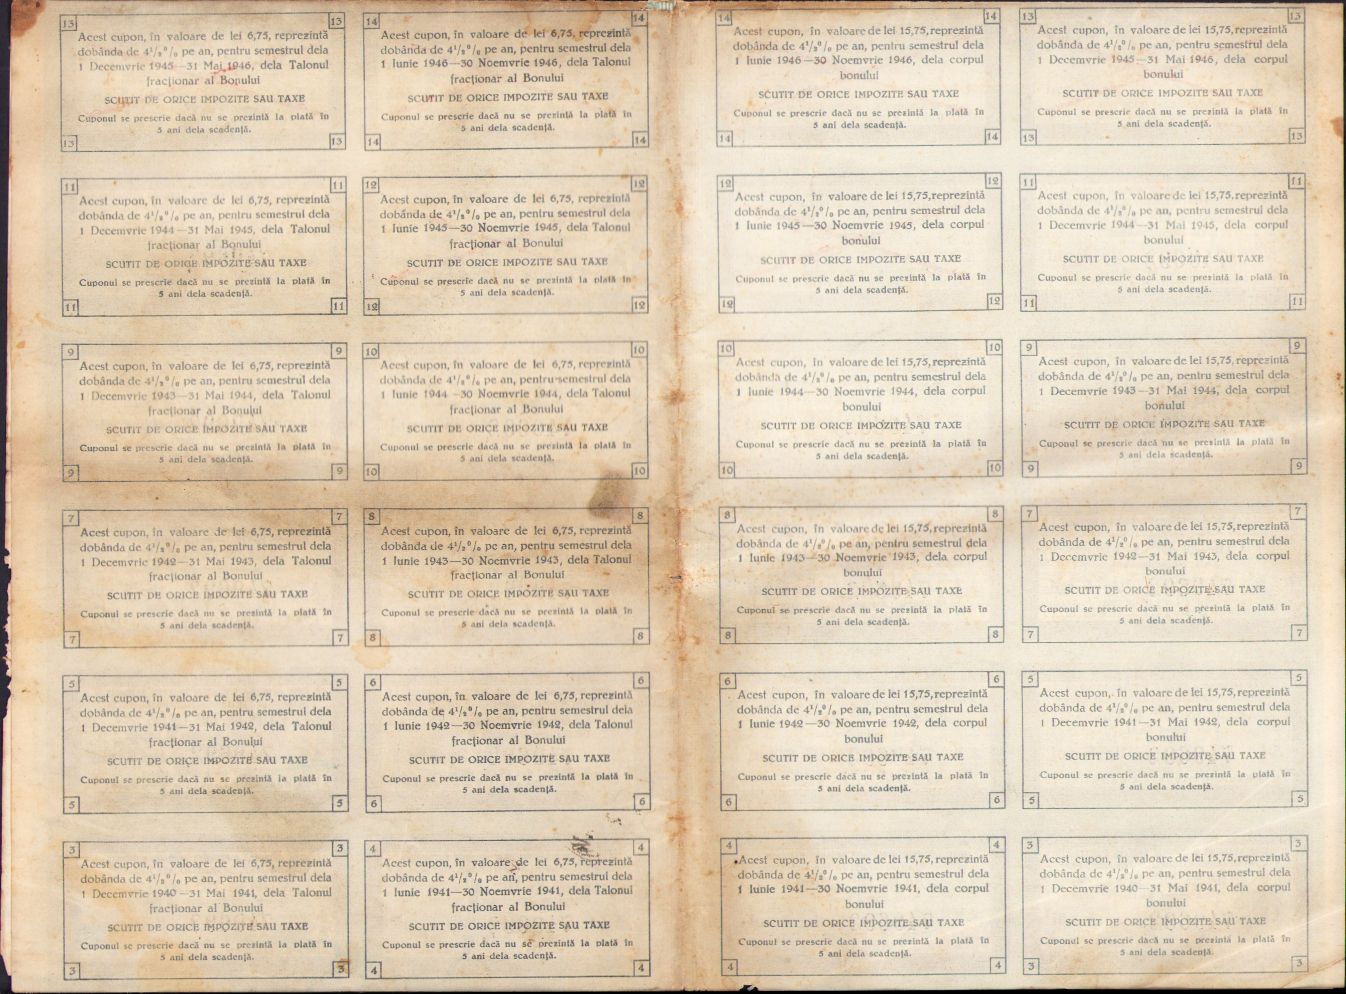 13 13
Acest cupon, în valoare de lei 6,75, reprezintă
dobânda de 4¹/₂⁰/₀ pe an, pentru semestrul dela
1 Decemvrie 1945—31 Mai 1946, dela Talonul
fracţionar al Bonului
SCUTIT DE ORICE IMPOZITE SAU TAXE
Cuponul se prescrie dacă nu se prezintă la plată în
5 ani dela scadenţă.
13 13
14 14
Acest cupon, în valoare de lei 6,75, reprezintă
dobânda de 4¹/₂⁰/₀ pe an, pentru semestrul dela
1 Iunie 1946—30 Noemvrie 1946, dela Talonul
fracţionar al Bonului
SCUTIT DE ORICE IMPOZITE SAU TAXE
Cuponul se prescrie dacă nu se prezintă la plată în
5 ani dela scadenţă.
14 14
14 14
Acest cupon, în valoare de lei 15,75, reprezintă
dobânda de 4¹/₂⁰/₀ pe an, pentru semestrul dela
1 Iunie 1946—30 Noemvrie 1946, dela corpul
bonului
SCUTIT DE ORICE IMPOZITE SAU TAXE
Cuponul se prescrie dacă nu se prezintă la plată în
5 ani dela scadenţă.
14 14
13 13
Acest cupon, în valoare de lei 15,75, reprezintă
dobânda de 4¹/₂⁰/₀ pe an, pentru semestrul dela
1 Decemvrie 1945—31 Mai 1946, dela corpul
bonului
SCUTIT DE ORICE IMPOZITE SAU TAXE
Cuponul se prescrie dacă nu se prezintă la plată în
5 ani dela scadenţă.
13 13
11 11
Acest cupon, în valoare de lei 6,75, reprezintă
dobânda de 4¹/₂⁰/₀ pe an, pentru semestrul dela
1 Decemvrie 1944—31 Mai 1945, dela Talonul
fracţionar al Bonului
SCUTIT DE ORICE IMPOZITE SAU TAXE
Cuponul se prescrie dacă nu se prezintă la plată în
5 ani dela scadenţă.
11 11
12 12
Acest cupon, în valoare de lei 6,75, reprezintă
dobânda de 4¹/₂⁰/₀ pe an, pentru semestrul dela
1 Iunie 1945—30 Noemvrie 1945, dela Talonul
fracţionar al Bonului
SCUTIT DE ORICE IMPOZITE SAU TAXE
Cuponul se prescrie dacă nu se prezintă la plată în
5 ani dela scadenţă.
12 12
12 12
Acest cupon, în valoare de lei 15,75, reprezintă
dobânda de 4¹/₂⁰/₀ pe an, pentru semestrul dela
1 Iunie 1945—30 Noemvrie 1945, dela corpul
bonului
SCUTIT DE ORICE IMPOZITE SAU TAXE
Cuponul se prescrie dacă nu se prezintă la plată în
5 ani dela scadenţă.
12 12
11 11
Acest cupon, în valoare de lei 15,75, reprezintă
dobânda de 4¹/₂⁰/₀ pe an, pentru semestrul dela
1 Decemvrie 1944—31 Mai 1945, dela corpul
bonului
SCUTIT DE ORICE IMPOZITE SAU TAXE
Cuponul se prescrie dacă nu se prezintă la plată în
5 ani dela scadenţă.
11 11
9 9
Acest cupon, în valoare de lei 6,75, reprezintă
dobânda de 4¹/₂⁰/₀ pe an, pentru semestrul dela
1 Decemvrie 1943—31 Mai 1944, dela Talonul
fracţionar al Bonului
SCUTIT DE ORICE IMPOZITE SAU TAXE
Cuponul se prescrie dacă nu se prezintă la plată în
5 ani dela scadenţă.
9 9
10 10
Acest cupon, în valoare de lei 6,75, reprezintă
dobânda de 4¹/₂⁰/₀ pe an, pentru semestrul dela
1 Iunie 1944—30 Noemvrie 1944, dela Talonul
fracţionar al Bonului
SCUTIT DE ORICE IMPOZITE SAU TAXE
Cuponul se prescrie dacă nu se prezintă la plată în
5 ani dela scadenţă.
10 10
10 10
Acest cupon, în valoare de lei 15,75, reprezintă
dobânda de 4¹/₂⁰/₀ pe an, pentru semestrul dela
1 Iunie 1944—30 Noemvrie 1944, dela corpul
bonului
SCUTIT DE ORICE IMPOZITE SAU TAXE
Cuponul se prescrie dacă nu se prezintă la plată în
5 ani dela scadenţă.
10 10
9 9
Acest cupon, în valoare de lei 15,75, reprezintă
dobânda de 4¹/₂⁰/₀ pe an, pentru semestrul dela
1 Decemvrie 1943—31 Mai 1944, dela corpul
bonului
SCUTIT DE ORICE IMPOZITE SAU TAXE
Cuponul se prescrie dacă nu se prezintă la plată în
5 ani dela scadenţă.
9 9
7 7
Acest cupon, în valoare de lei 6,75, reprezintă
dobânda de 4¹/₂⁰/₀ pe an, pentru semestrul dela
1 Decemvrie 1942—31 Mai 1943, dela Talonul
fracţionar al Bonului
SCUTIT DE ORICE IMPOZITE SAU TAXE
Cuponul se prescrie dacă nu se prezintă la plată în
5 ani dela scadenţă.
7 7
8 8
Acest cupon, în valoare de lei 6,75, reprezintă
dobânda de 4¹/₂⁰/₀ pe an, pentru semestrul dela
1 Iunie 1943—30 Noemvrie 1943, dela Talonul
fracţionar al Bonului
SCUTIT DE ORICE IMPOZITE SAU TAXE
Cuponul se prescrie dacă nu se prezintă la plată în
5 ani dela scadenţă.
8 8
8 8
Acest cupon, în valoare de lei 15,75, reprezintă
dobânda de 4¹/₂⁰/₀ pe an, pentru semestrul dela
1 Iunie 1943—30 Noemvrie 1943, dela corpul
bonului
SCUTIT DE ORICE IMPOZITE SAU TAXE
Cuponul se prescrie dacă nu se prezintă la plată în
5 ani dela scadenţă.
8 8
7 7
Acest cupon, în valoare de lei 15,75, reprezintă
dobânda de 4¹/₂⁰/₀ pe an, pentru semestrul dela
1 Decemvrie 1942—31 Mai 1943, dela corpul
bonului
SCUTIT DE ORICE IMPOZITE SAU TAXE
Cuponul se prescrie dacă nu se prezintă la plată în
5 ani dela scadenţă.
7 7
5 5
Acest cupon, în valoare de lei 6,75, reprezintă
dobânda de 4¹/₂⁰/₀ pe an, pentru semestrul dela
1 Decemvrie 1941—31 Mai 1942, dela Talonul
fracţionar al Bonului
SCUTIT DE ORICE IMPOZITE SAU TAXE
Cuponul se prescrie dacă nu se prezintă la plată în
5 ani dela scadenţă.
5 5
6 6
Acest cupon, în valoare de lei 6,75, reprezintă
dobânda de 4¹/₂⁰/₀ pe an, pentru semestrul dela
1 Iunie 1942—30 Noemvrie 1942, dela Talonul
fracţionar al Bonului
SCUTIT DE ORICE IMPOZITE SAU TAXE
Cuponul se prescrie dacă nu se prezintă la plată în
5 ani dela scadenţă.
6 6
6 6
Acest cupon, în valoare de lei 15,75, reprezintă
dobânda de 4¹/₂⁰/₀ pe an, pentru semestrul dela
1 Iunie 1942—30 Noemvrie 1942, dela corpul
bonului
SCUTIT DE ORICE IMPOZITE SAU TAXE
Cuponul se prescrie dacă nu se prezintă la plată în
5 ani dela scadenţă.
6 6
5 5
Acest cupon, în valoare de lei 15,75, reprezintă
dobânda de 4¹/₂⁰/₀ pe an, pentru semestrul dela
1 Decemvrie 1941—31 Mai 1942, dela corpul
bonului
SCUTIT DE ORICE IMPOZITE SAU TAXE
Cuponul se prescrie dacă nu se prezintă la plată în
5 ani dela scadenţă.
5 5
3 3
Acest cupon, în valoare de lei 6,75, reprezintă
dobânda de 4¹/₂⁰/₀ pe an, pentru semestrul dela
1 Decemvrie 1940—31 Mai 1941, dela Talonul
fracţionar al Bonului
SCUTIT DE ORICE IMPOZITE SAU TAXE
Cuponul se prescrie dacă nu se prezintă la plată în
5 ani dela scadenţă.
3 3
4 4
Acest cupon, în valoare de lei 6,75, reprezintă
dobânda de 4¹/₂⁰/₀ pe an, pentru semestrul dela
1 Iunie 1941—30 Noemvrie 1941, dela Talonul
fracţionar al Bonului
SCUTIT DE ORICE IMPOZITE SAU TAXE
Cuponul se prescrie dacă nu se prezintă la plată în
5 ani dela scadenţă.
4 4
4 4
Acest cupon, în valoare de lei 15,75, reprezintă
dobânda de 4¹/₂⁰/₀ pe an, pentru semestrul dela
1 Iunie 1941—30 Noemvrie 1941, dela corpul
bonului
SCUTIT DE ORICE IMPOZITE SAU TAXE
Cuponul se prescrie dacă nu se prezintă la plată în
5 ani dela scadenţă.
4 4
3 3
Acest cupon, în valoare de lei 15,75, reprezintă
dobânda de 4¹/₂⁰/₀ pe an, pentru semestrul dela
1 Decemvrie 1940—31 Mai 1941, dela corpul
bonului
SCUTIT DE ORICE IMPOZITE SAU TAXE
Cuponul se prescrie dacă nu se prezintă la plată în
5 ani dela scadenţă.
3 3